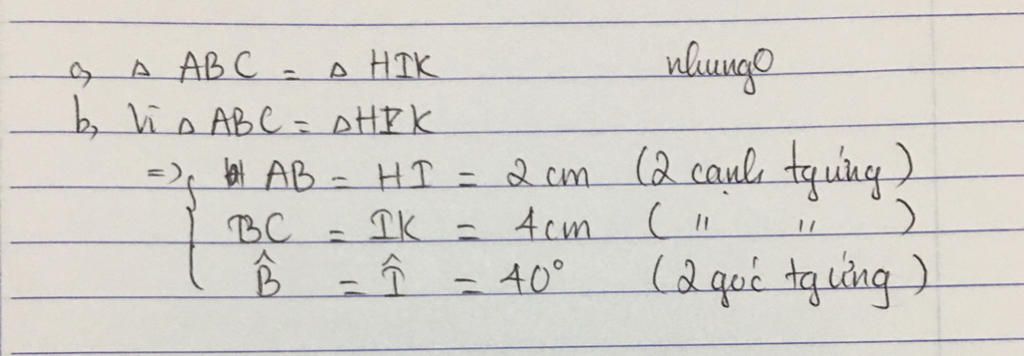 a, Δ ABC = Δ HIK nhung0
b, Vì Δ ABC = Δ HIK
=> { AB = HI = 2 cm (2 cạnh tg ứng)
BC = IK = 4cm ( " " )
B̂ = Î = 40° (2 góc tg ứng)